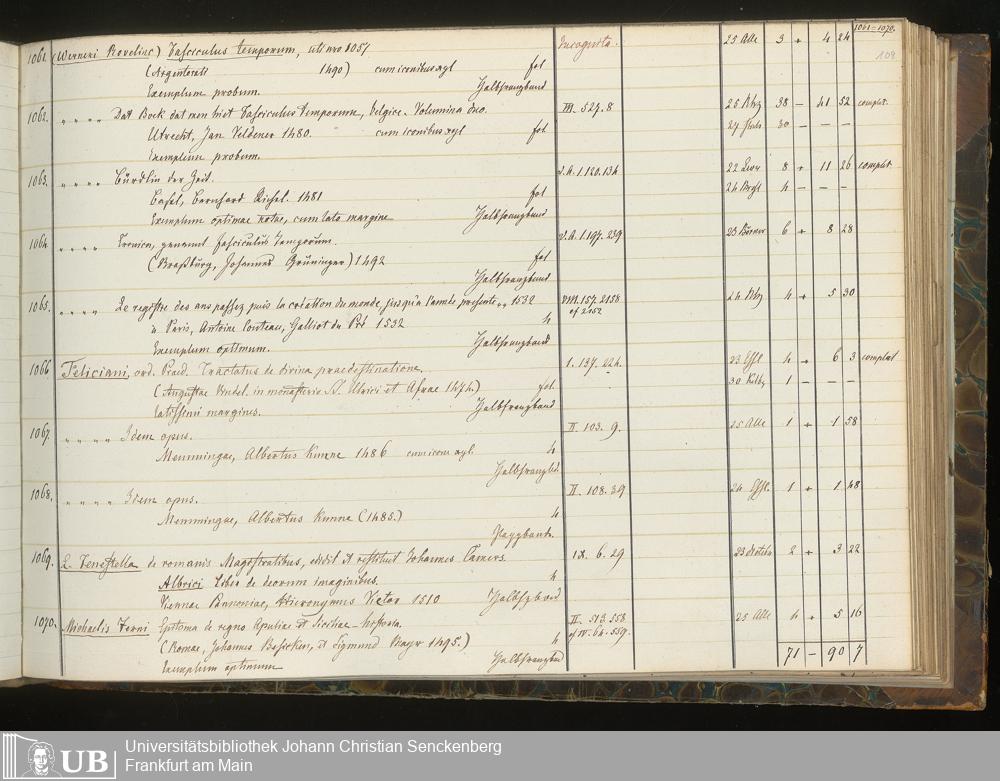 1061-1070.
109
1061. (Werneri Rovelinc) Fasciculus temporum, uti nro 1051 Incognita. 25 Alle 3 + 4 24
(Argentorati 1490) cum iconibus xyl fol
Exemplum probum. Halbfranzband
1062. " " " " Dat Boek dat men hiet Fasciculus temporum, belgice. Volumina duo. III. 527. 8 25 38 — 41 52 complet.
Utrecht, Jan Veldener 1480. cum iconibus xyl fol 27 30 — — —
Exemplum probum.
1063. " " " " Bürdlin der Zeit. v.A. 1.180.134 22 8 + 11 26 complet
Basel, Bernhard Richel. 1481 fol 24 4 — — —
Exemplum optimae notae, cum lato margine Halbfranzband
1064. " " " " Cronica, genannt fasciculus temporum. v.A. 1.197.239 23 6 + 8 28
(Straßburg, Johannes Grüninger) 1492 fol
Halbfranzband
1065. " " " " Le registre des ans passez puis la création du monde, jusqu'a l'année presente " 1532 VIII. 157. 2158 24 4 + 5 30
à Paris, Antoine Couteau, Galliot du Pré 1532 4 cf 2152
Exemplum optimum. Halbfranzband
1066 Feliciani, ord. Praed. Tractatus de divina praedestinatione. 1. 137. 224. 23 4 + 6 3 complet
(Augustae Vindel. in monasterio SS. Ulrici et Afrae 1474.) fol 30 1 — — —
latissimi margines. Halbfranzband
1067. " " " " Idem opus. II. 103. 9. 25 Alle 1 + 1 58
Memmingae, Albertus Kunne 1486 cum icone xyl. 4
Halbfranzbd.
1068. " " " " Idem opus. II. 108. 39 24 1 + 1 48
Memmingae, Albertus Kunne (1485.) 4
Pappband.
1069. L. Fenestella de romanis Magistratibus, edidit et restituit Johannes Camers. IX. 6. 29 23 2 + 3 22
Albrici Liber de deorum imaginibus. 4
Viennae Pannoniae, Hieronymus Victor 1510 Halbfrzband
1070. Michaelis Ferni Epitoma de regno Apuliae et Siciliae historia. II. 513. 558. 25 Alle 4 + 5 16
(Romae, Johannes Besicken, et Sigmund Mayr 1495.) 4 cf IV. 64. 559.
Exemplum optimum Halbfranzband 71 — 90 7
UB
Universitätsbibliothek Johann Christian Senckenberg
Frankfurt am Main